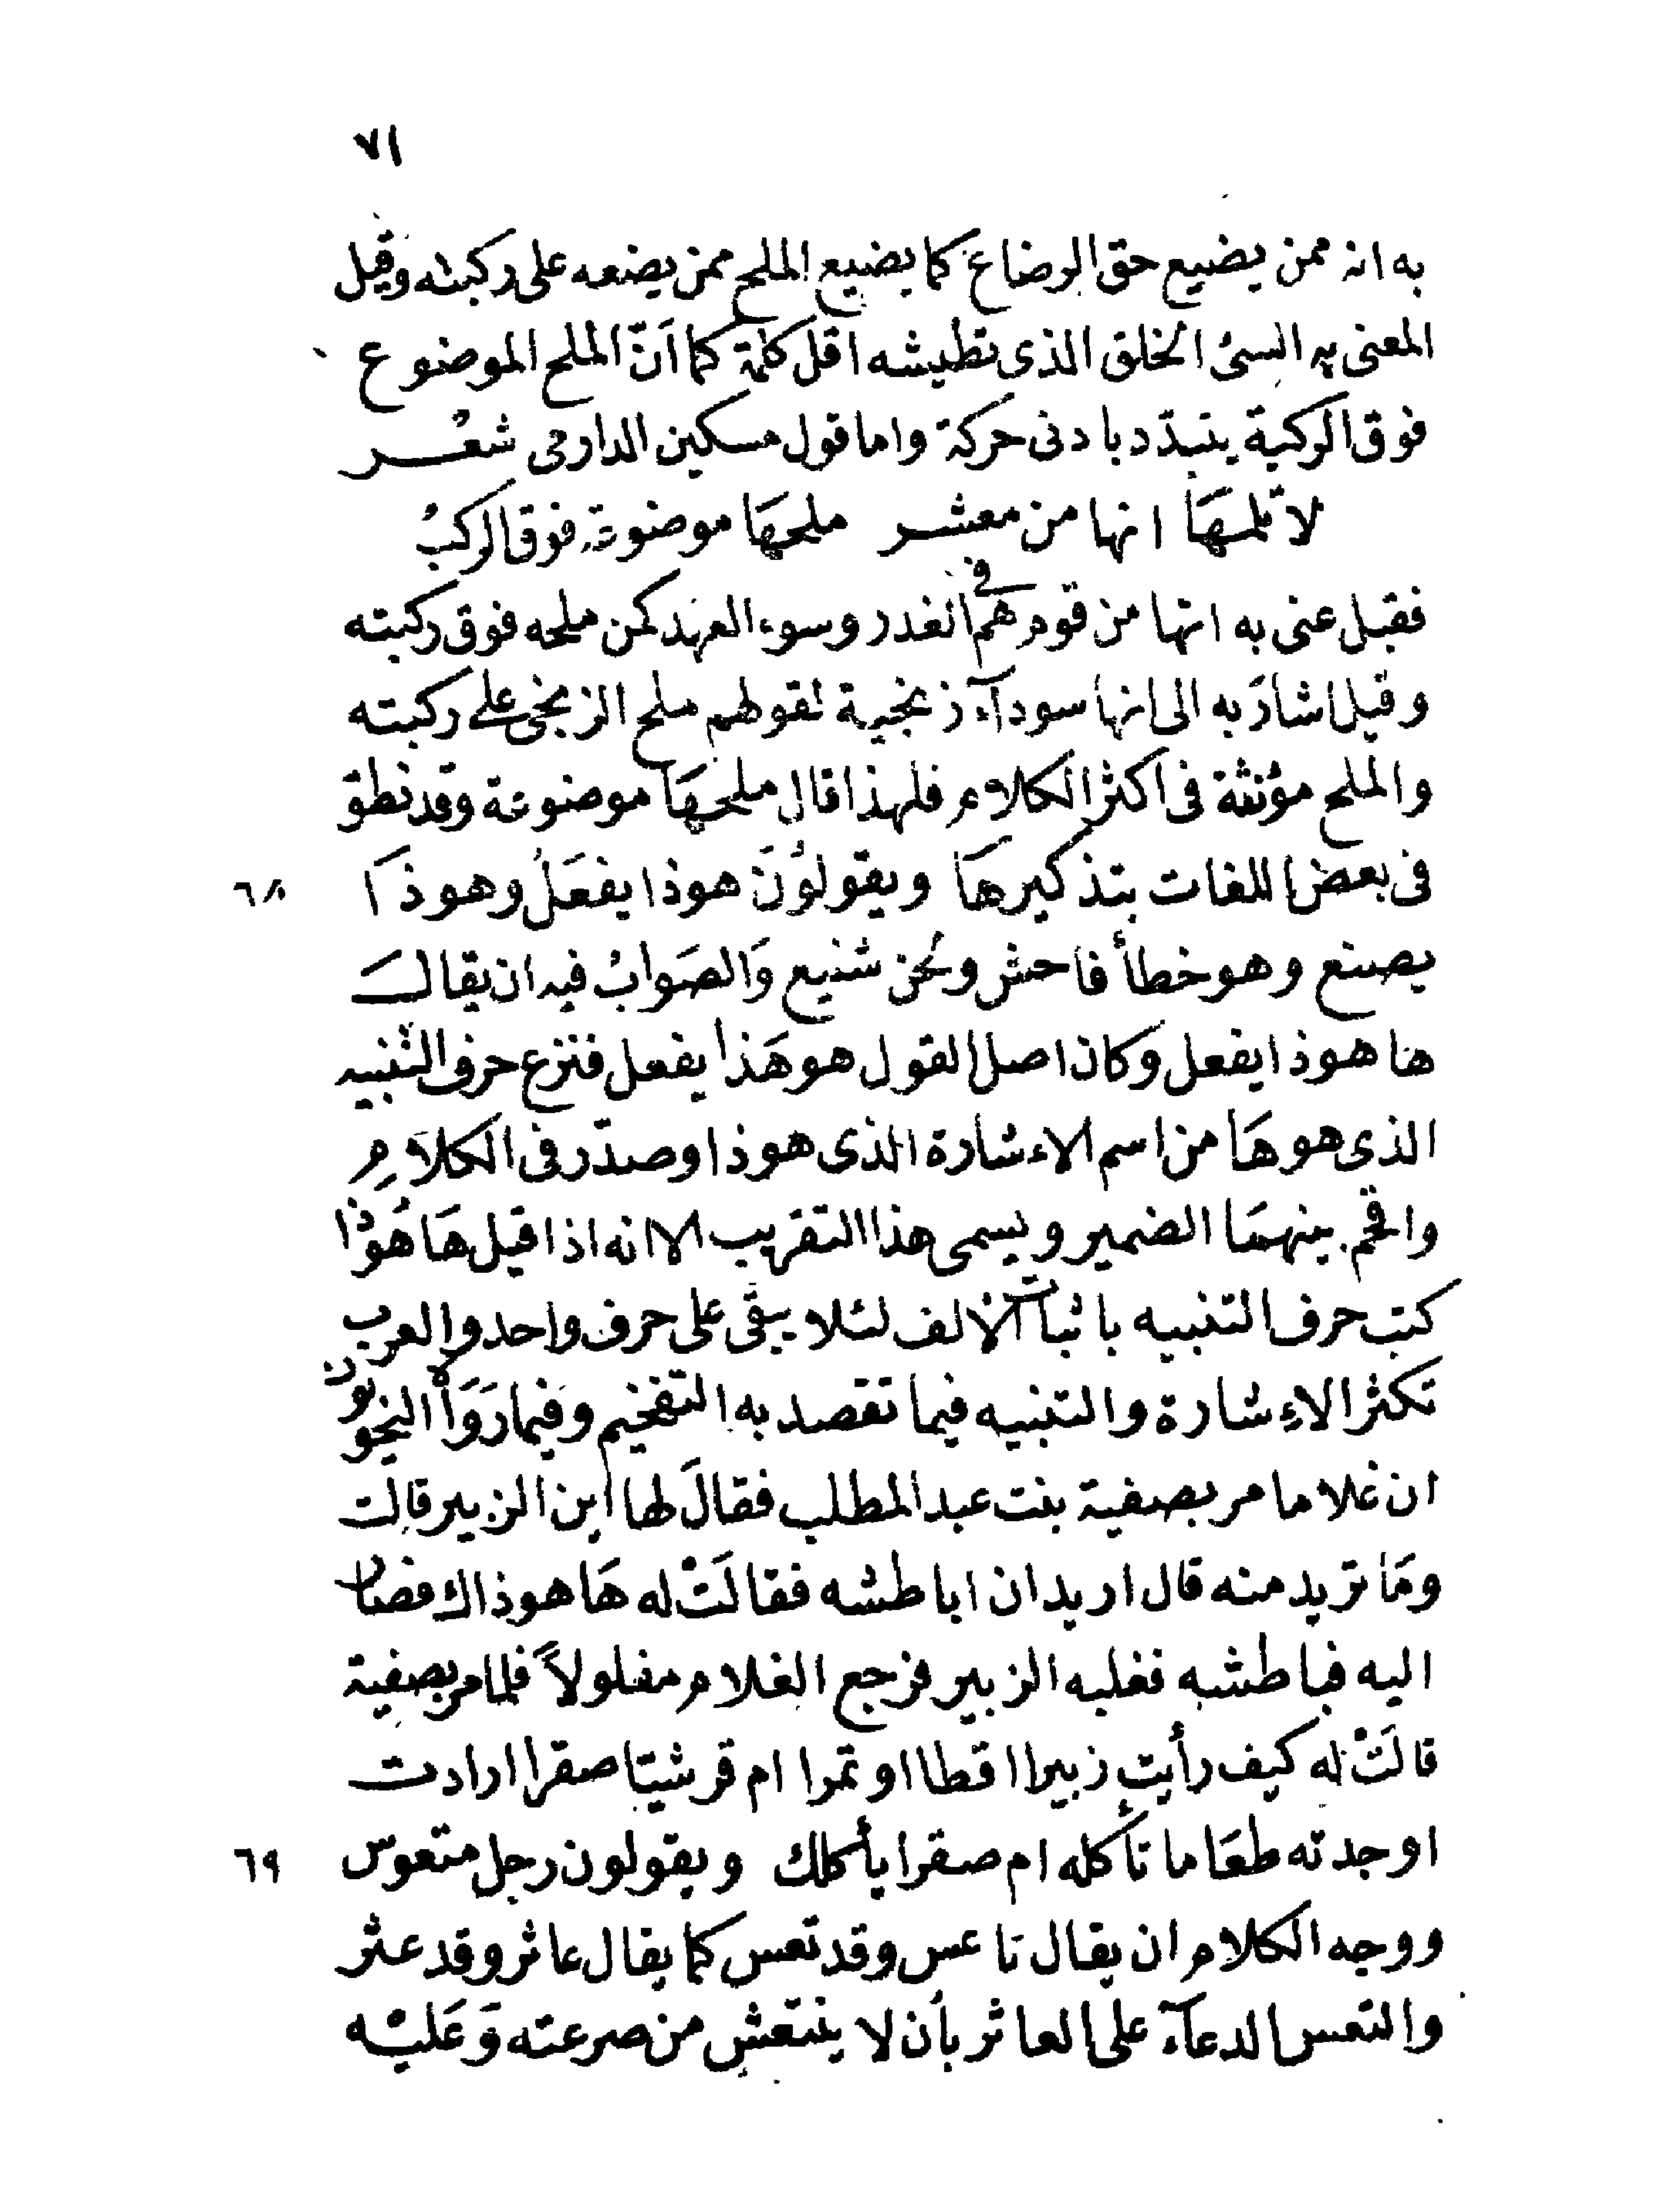 ٧١
به انه ممن يضيع حق الرضاع كما يضيع الملح ممن يضعه على ركبته وقيل
المعنى به السئ الخلق الذى تطيشه اقل كلمة كما اَنّ الملح الموضوع
فوق الركبة يتبدّد بادنى حركة واما قول مسكين الدارمى شعر
لا تلمهَا انها من معشر ملحهَا موضوعة فوق الركبُ
فقيل عنى به انها من قوم هم فى الغدر وسوء العهد كمن ملحه فوق ركبته
وقيل اشارَ به الى انها سودآء زنجية لقولهم ملح الزنجى على ركبته
والملح مؤنثة فى اكثر الكلام فلهذا قال ملحهَا موضوعة وقد نطق
فى بعض اللغات بتذكيرهَا ويقولوُنَ هوذا يفعَلُ وهوذَا
٦٨
يصنع وهو خطأ فاحش ولحن شنيع وَالصَوابُ فيه ان يقالَ
ها هوذا يفعل وكان اصل القول هو هَذا يفعل فنزع حرف التنبيه
الذى هو هَا من اسم الاءشارة الذى هو ذا وصدّر فى الكلَامِ
واقحم بينهمَا الضمير ويسمى هذا التقريب الا انه اذا قيل هَا هُوَذا
كتب حرف التنبيه باثبات الالف لئلا يبقى على حرف واحد والعرب
تكثر الاءشارة والتنبيه فيما تقصد به التفخيم وفيما رَوَاْهُ النحويون
ان غلاما مر بصفية بنت عبد المطلب فقالَ لها اين الزبير قالت
ومَا تريد منه قال اريد ان اباطشه فقالَتْ له هَا هو ذاك فصار
اليه فباطشه فغلبه الزبير فرجع الغلام مفلولاً فلما مر بصفية
قالَتْ له كيف رأيت زبيرا اقطا او تمرا ام قرشيّا صقرا ارادت
اوجدته طعَاما تأكله ام صقرا يأكلك ويقولون رجل متعوس
٦٩
ووجه الكلام ان يقال تاعس وقد تعس كما يقال عاثر وقد عثر
والتعس الدعآء على العاثر بأن لا ينتعش من صرعته وَعَليْه